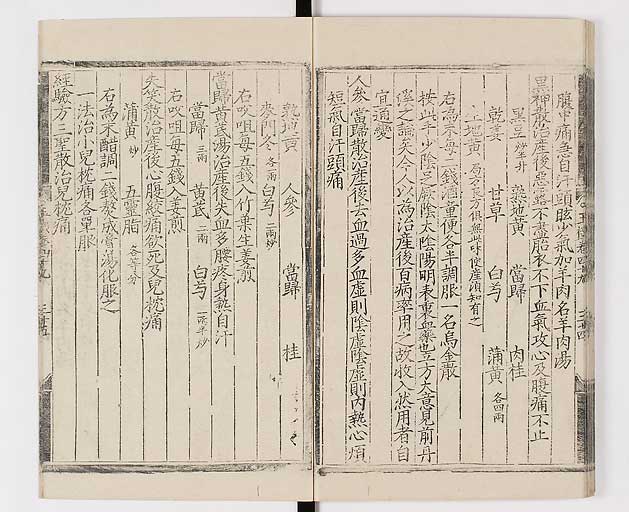 腹中痛盗自汗頭眩少氣加羊肉名羊肉湯
黑神散治産後惡露不盡胎衣不下血氣攻心及腹痛不止
黑豆炒半升 熟地黄 當歸 肉桂
乾姜 甘草 白芍 蒲黄各四兩
生地黄
右為末每二錢酒童便各半調服一名烏金散
按此手少陰足厥陰太陰陽明表裏血藥豈方大意見前丹
溪之論矣今人以為治産後百病率用之故收入狀用者自
宜通變
人參當歸散治産後去血過多血虛則陰虛陰虛則内熱心煩
短氣自汗頭痛
熟地黄 人參 當歸 桂
麥門冬各二兩 白芍二兩炒
右㕮咀每五錢入竹葉生姜煎
當歸黄芪湯治産後失血多腰疼身熱自汗
當歸三兩 黄芪二兩 白芍
右㕮咀每五錢入姜煎
失笑散治産後心腹絞痛欲死及兒枕痛
蒲黄炒 五靈脂各等分
右為末醋調二錢熬成膏湯化服之
一法治小兒枕痛各單服
經驗方三聖散治兒枕痛